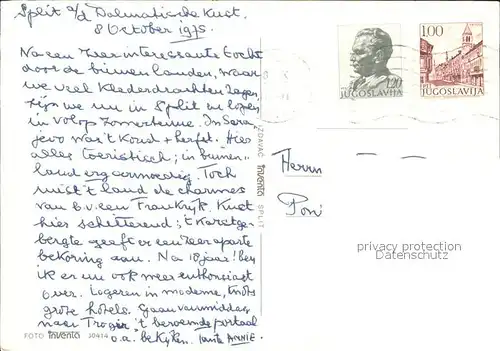 Split a/d Dalmatische Kust.
8 October 1975.
Na een zeer interessante tocht
door de binnenlanden, waar
we veel klederdrachten zagen,
zijn we nu in Split en lopen
in volop zomertenue. In Sera
jevo was 't koud + herfst. Hier
alles toeristisch; in binnen-
land erg armoedig. Toch
mist 't land de charmes
van b.v. een Frankrijk. Kust
hier schitterend; 't Karstge-
bergte geeft er een zeer aparte
bekoring aan. Na 10 jaar! ben
ik er nu ook meer enthousiast
over. Logeren in moderne, grote
hotels. Gaan vanmiddag
naar Trogir 't beroemde portaal
o.a. bekijken. tante ANNIE.
FOTO inventa 30414
IZDAVAČ inventa SPLIT
1,20
JUGOSLAVIJA
1,00
JUGOSLAVIJA
Herrn
privacy protection
Datenschutz